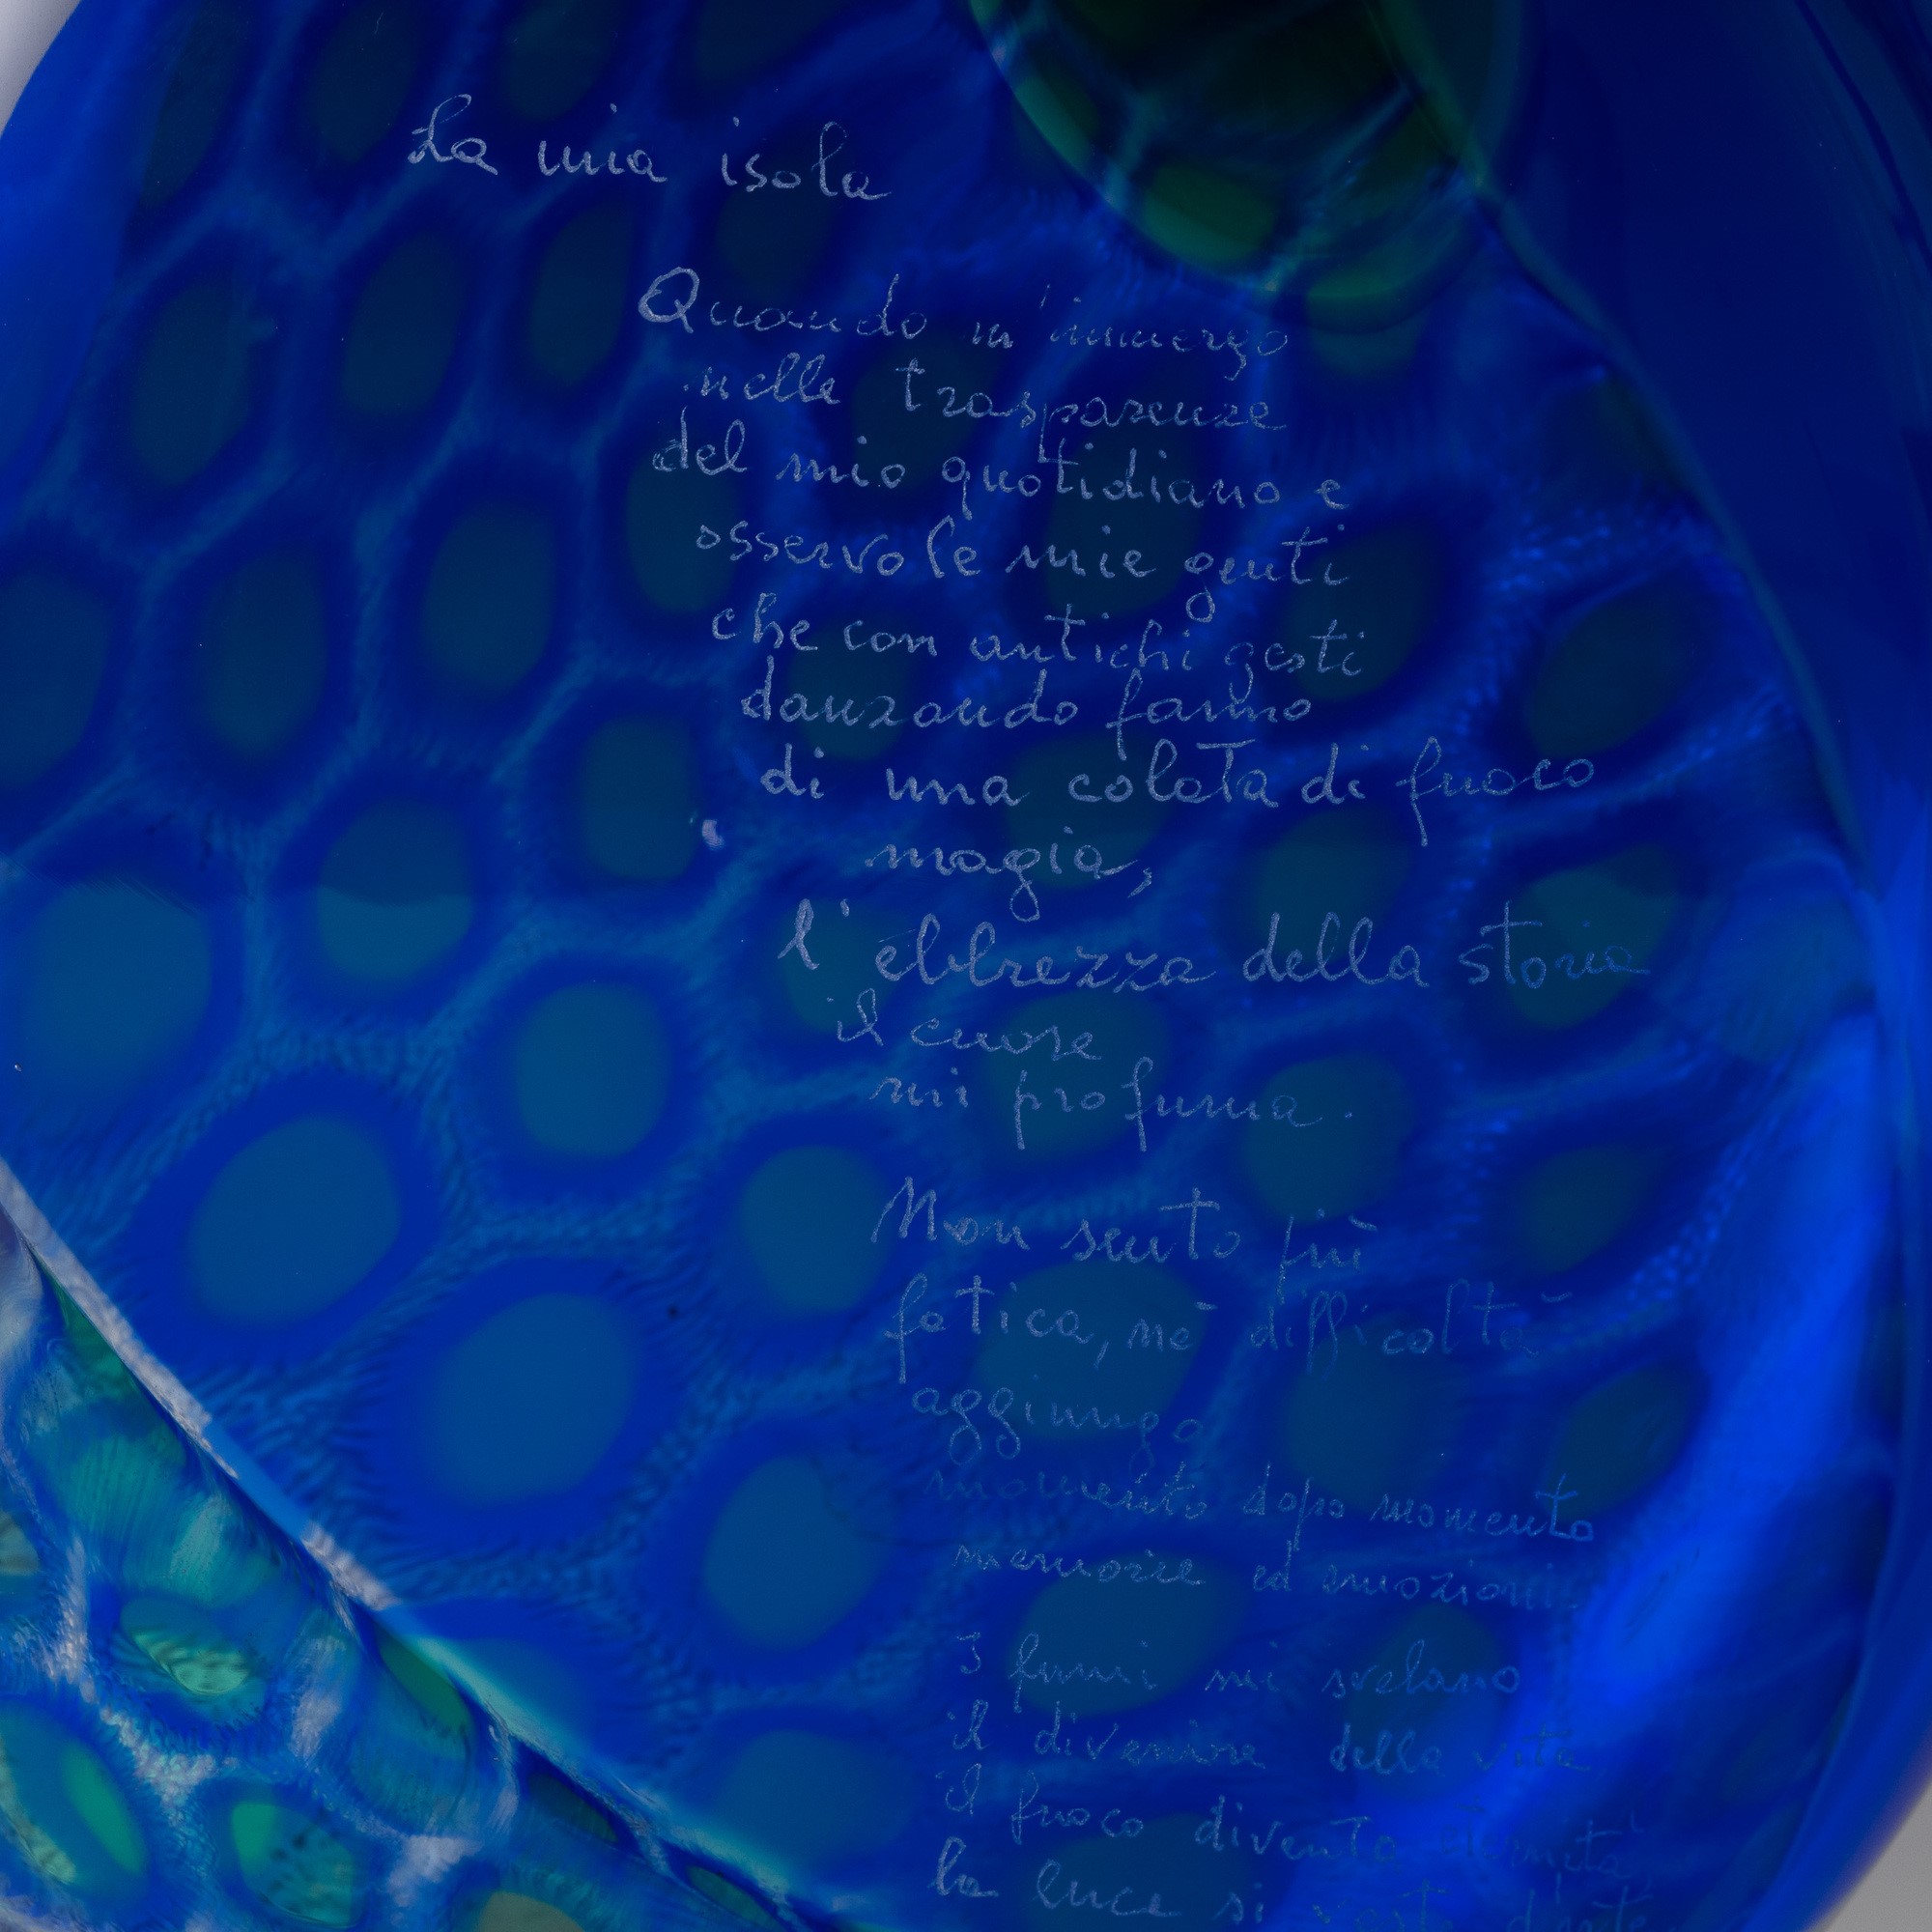 La mia isola
Quando m'immergo
nelle trasparenze
del mio quotidiano e
osservo le mie genti
che con antichi gesti
danzando fanno
di una colata di fuoco
magia,
l'ebbrezza della storia
il cuore
mi profuma.
Non sento più
fatica, nè difficoltà
aggiungo
momento dopo momento
memorie ed emozioni
I fumi mi svelano
il divenire della vita
il fuoco diventa eternità,
la luce si veste d'arte